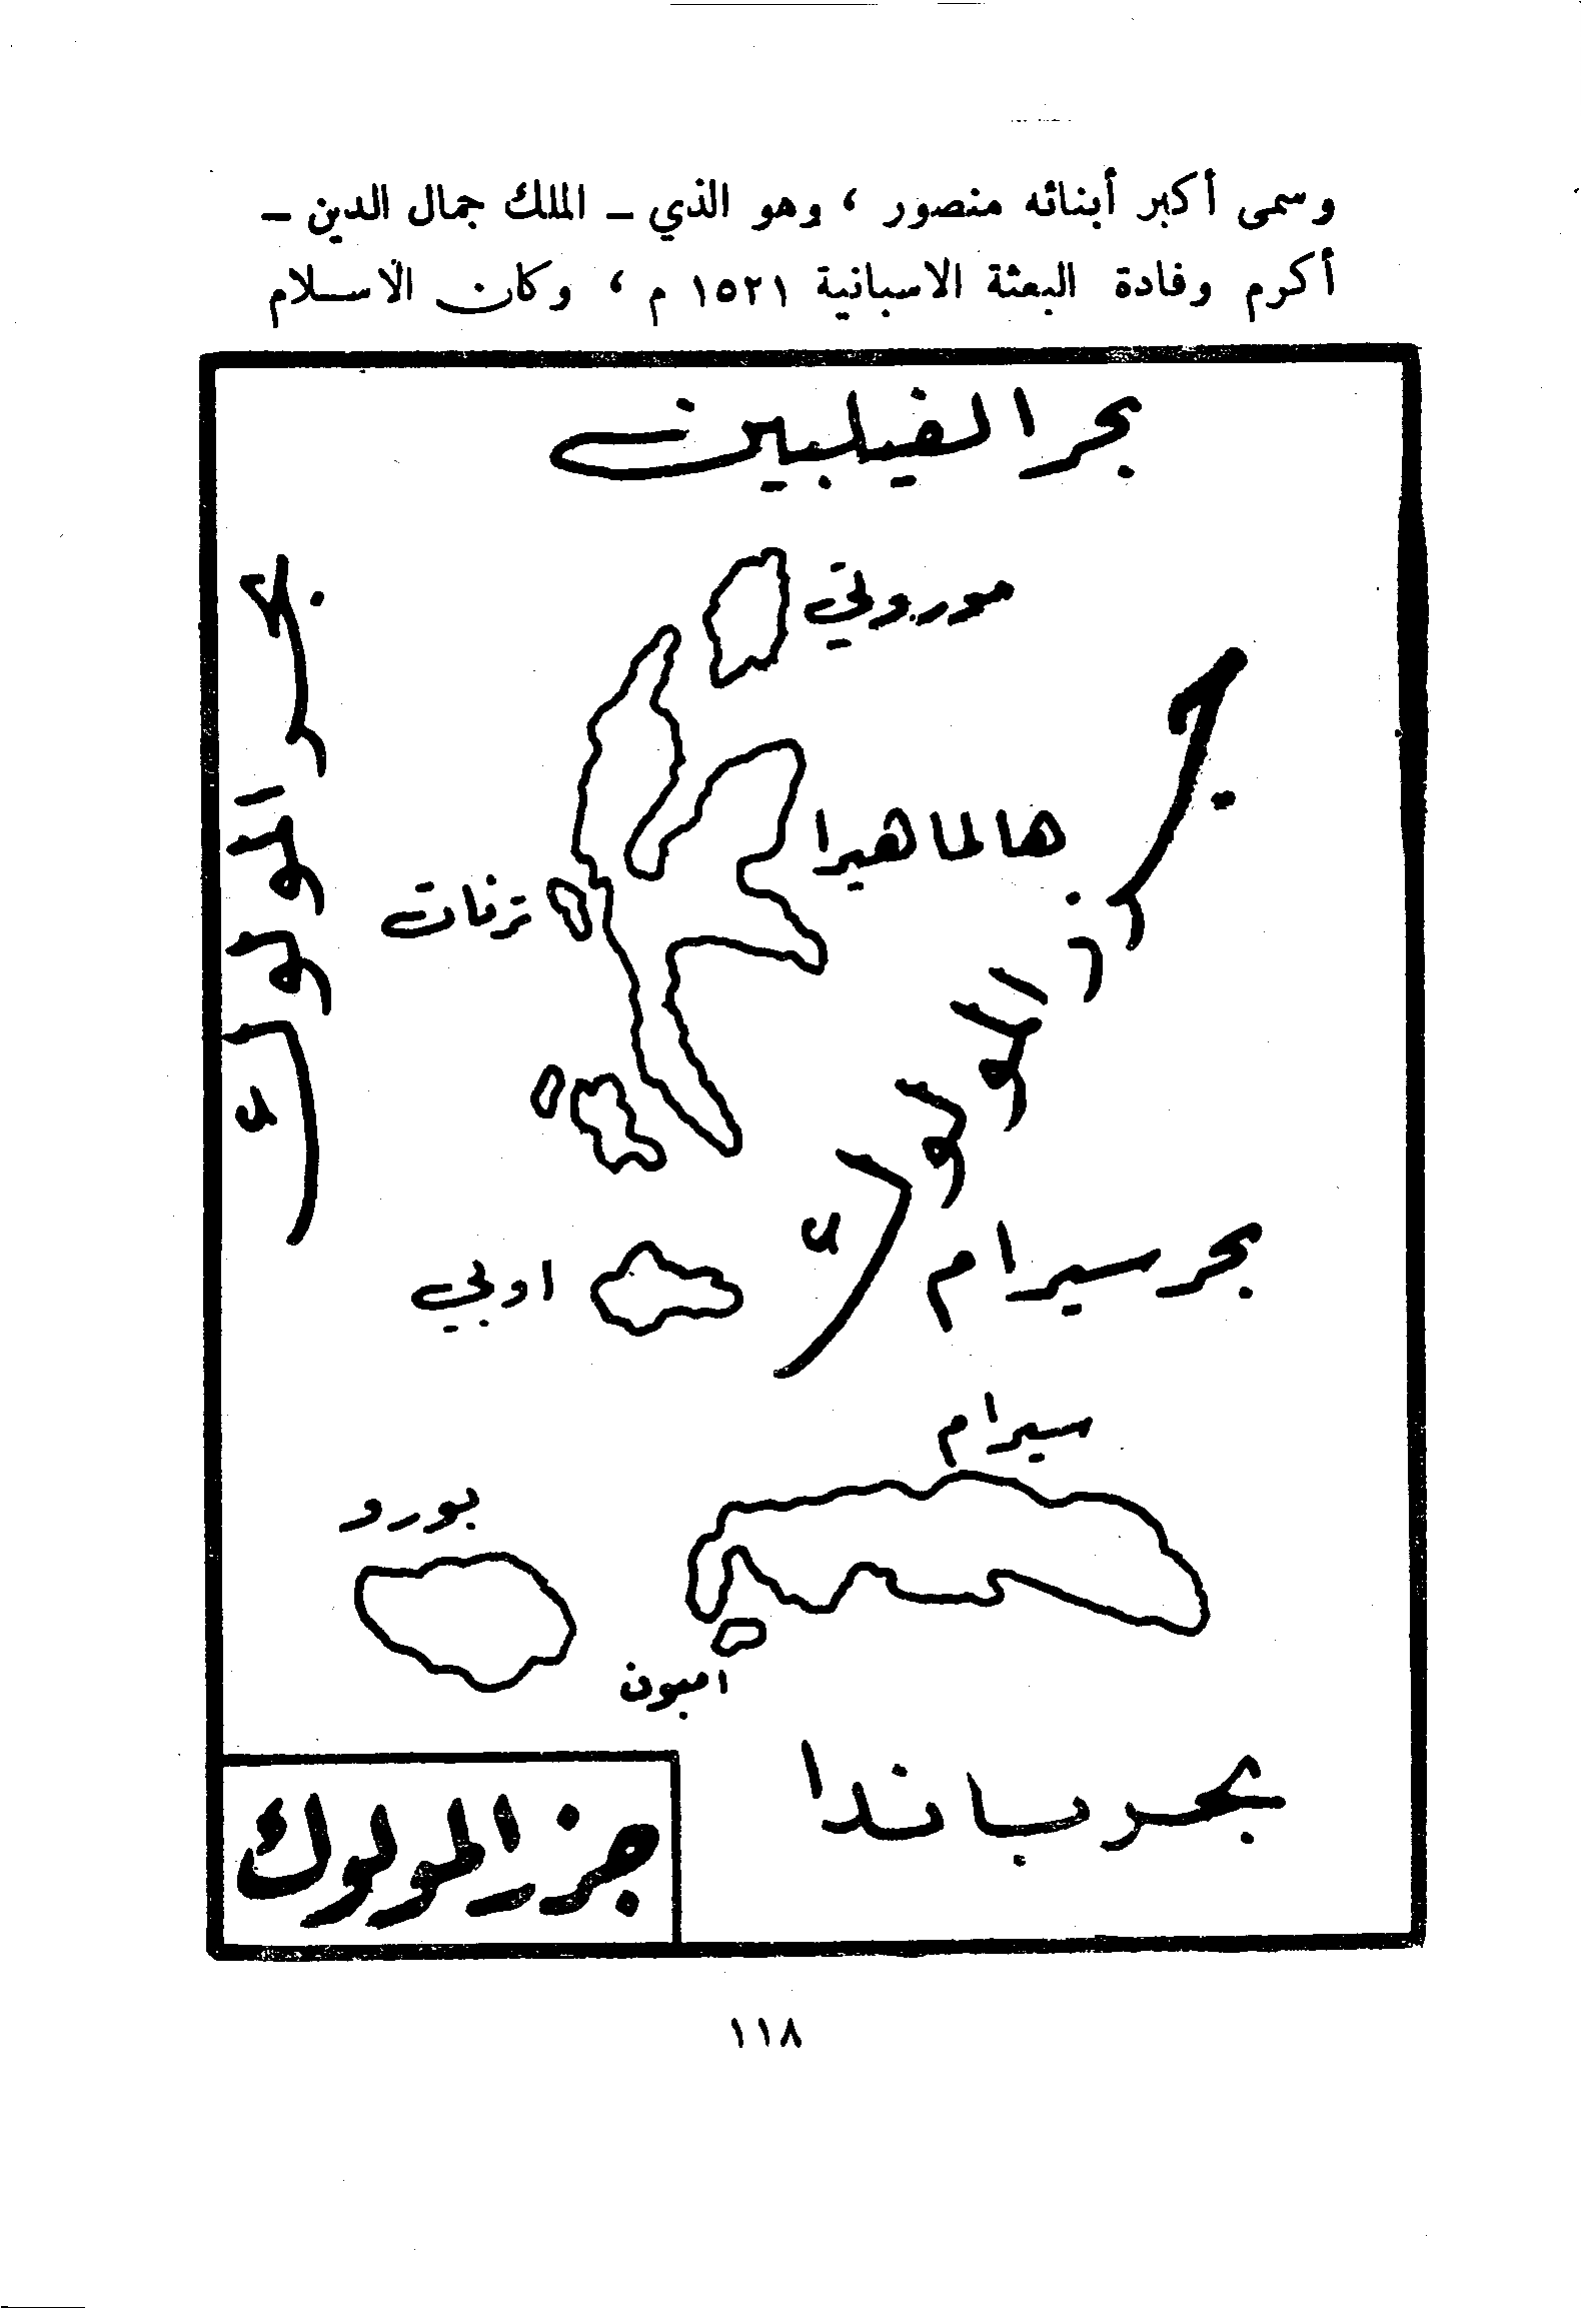 وسمى أكبر أبنائه منصور ، وهو الذي – الملك جمال الدين –
أكرم وفادة البعثة الاسبانية ١٥٢١ م ، وكان الاسلام
بحر الفيلبين
موروتي
هالماهيرا
ترنات
بحر المولوك
جزر المولوك
بحر سيرام
اوبي
سيرام
بورو
امبون
بحر باندا
جزر المولوك
١١٨